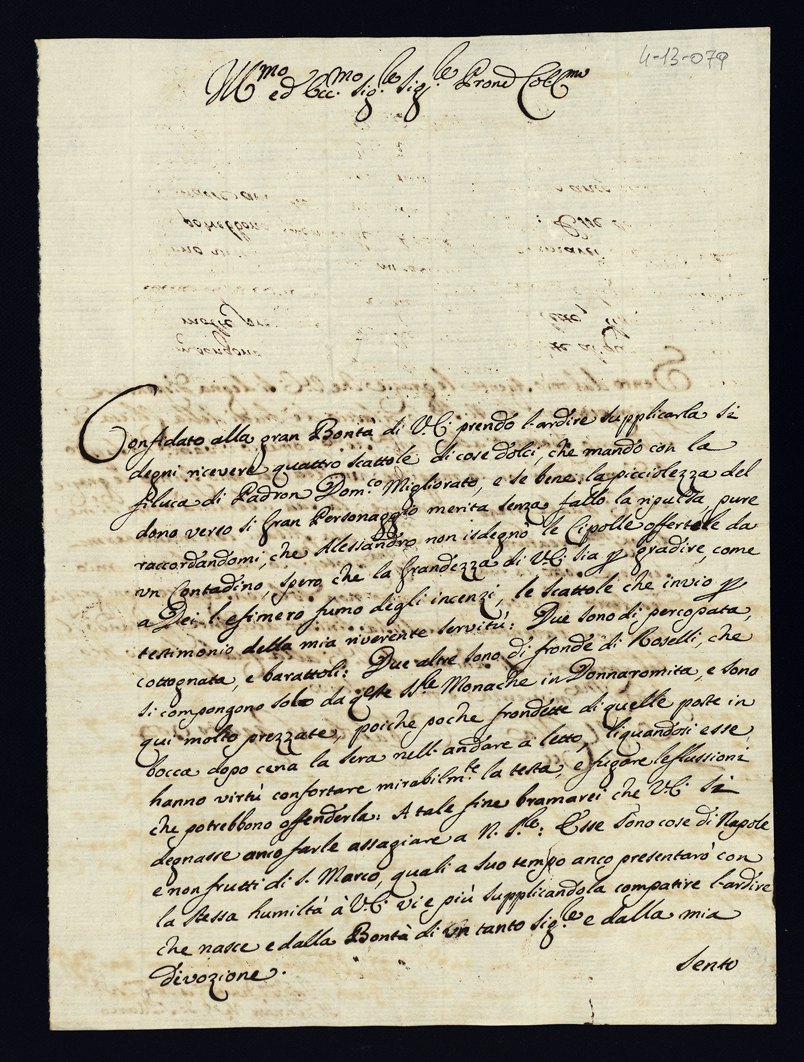 4-13-079
Ill.mo ed Ecc.mo Sig.re Sig.re e Prone Col.mo
Confidato alla gran Bontà di V.E. prendo l'ardire supplicarla si
degni ricevere quattro scattole di cose dolci, che mando con la
filuca di Padron Dom.co Migliorato, e se bene la picciolezza del
dono verso sì gran Personaggio merita senza fallo la ripulsa, pure
raccordandomi, che Alessandro non isdegnò le Cipolle offertele da
vn Contadino, spero, che la grandezza di V.E. sia p gradire, come
a Dei l'efimero fumo degli incenzi, le scattole che invio p
testimonio della mia riverente servitù: Due sono di percopata,
cottognata, e barattoli: Due altre sono di fronde di Roselli, che
si compongono solo da q.este SS.re Monache in Donnaromita, e sono
qui molto prezzate, poiche poche frondette di quelle poste in
bocca dopo cena la sera nell'andare a letto, liquandosi esse
hanno virtù confortare mirabilm.te la testa, e fugare le flussioni
che potrebbono offenderla: A tale fine bramarei che V.E. si
degnasse anco farle assagiare a N. S.re: Esse sono cose di Napole
e non frutti di S. Marco, quali a suo tempo anco presentarò con
la stessa humiltà à V.E. vie più supplicandola compatire l'ardire
che nasce e dalla Bontà di un tanto Sig.re e dalla mia
divozione.
Sento